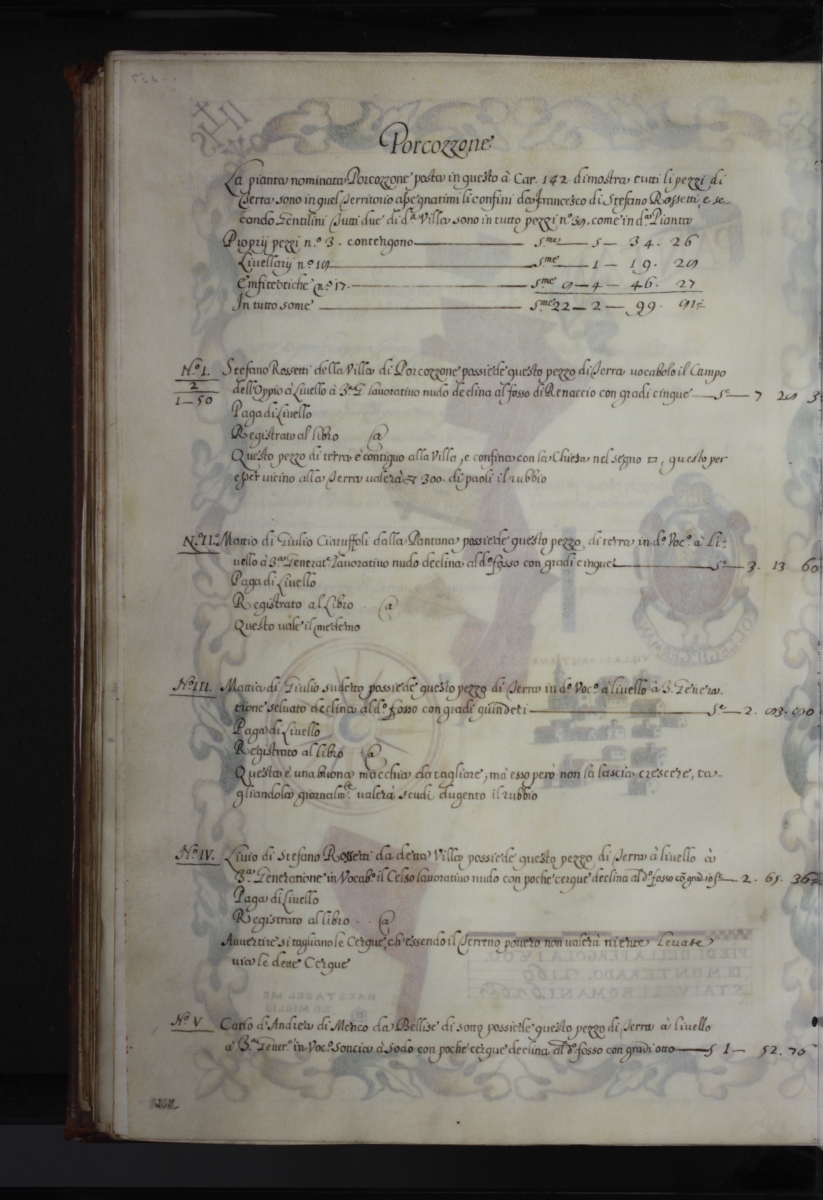 Porcozzone
La pianta nominata Porcozzone posta in questo à Car. 142. dimostra tutti li pezzi di
Terra sono in quel Territorio assegnatimi li confini da Francesco di Stefano Rossetti, e se-
condo Gentilini Tutti due di dᵃ Villa sono in tutto pezzi n.º 39. come in dᵃ Pianta
Proprij pezzi n.º 3. contengono — sme — 5 — 34. 26
Livellarij n.º 19 — sme — 1 — 19. 29
Emfiteotiche n.º 17. — sme 9 — 4 — 46. 27
In tutto some — sme 22 — 2 — 99. 91
N.º I. Stefano Rossetti della Villa di Porcozzone possiede questo pezzo di Terra vocabolo il Campo
2
1 – 50
dell'Oppio à Livello à 3ᵃ G lavorativo nudo declina al fosso di Renaccio con gradi cinque — Sᵉ — 7 29 3
Paga di Livello
Registrato al libro @
Questo pezzo di terra è contiguo alla Villa, e confina con la Chiesa nel segno □, questo per
esser vicino alla Terra valerà 300. di paoli il rubbio
N.º II. Mattio di Giulio Ciaruffoli dalla Pantana possiede questo pezzo di terra in dº Vocº à Li-
vello à 3ᵃ Generatᵉ lavorativo nudo declina al dº fosso con gradi cinque — Sᵉ — 3. 13 60
Paga di Livello
Registrato al Libro @
Questo vale il medemo
N.º III. Mattia di Giulio sudetto possiede questo pezzo di Terra in dº Vocº à livello à 3. Genera-
tione selvato declina al dº fosso con gradi quindeci — Sᵉ — 2. 93. 90
Paga di Livello
Registrato al libro @
Questa è una buona macchia da tagliare, mà esso però non la lascia crescere, ta-
gliandola giornalmᵗᵉ valerà scudi dugento il rubbio
N.º IV. Livio di Stefano Rossetti da detta Villa possiede questo pezzo di Terra à livello à
3ᵃ Generatione in Vocabº il Celso lavorativo nudo con poche cerque declina al dº fosso cõ gradi Sᵉ — 2. 65. 36
Paga di Livello
Registrato al libro. @
Avvertire si tagliano le Cerque, ch'essendo il Terreno povero non valerà niente Levate
via le dette Cerque
N.º V Carlo d'Andrea di Menco da Bellise di sotto possiede questo pezzo di Terra à livello
à 3ᵃ Generº in Vocº Soncia à sodo con poche cerque declina al dº fosso con gradi otto — S 1 — 52. 70